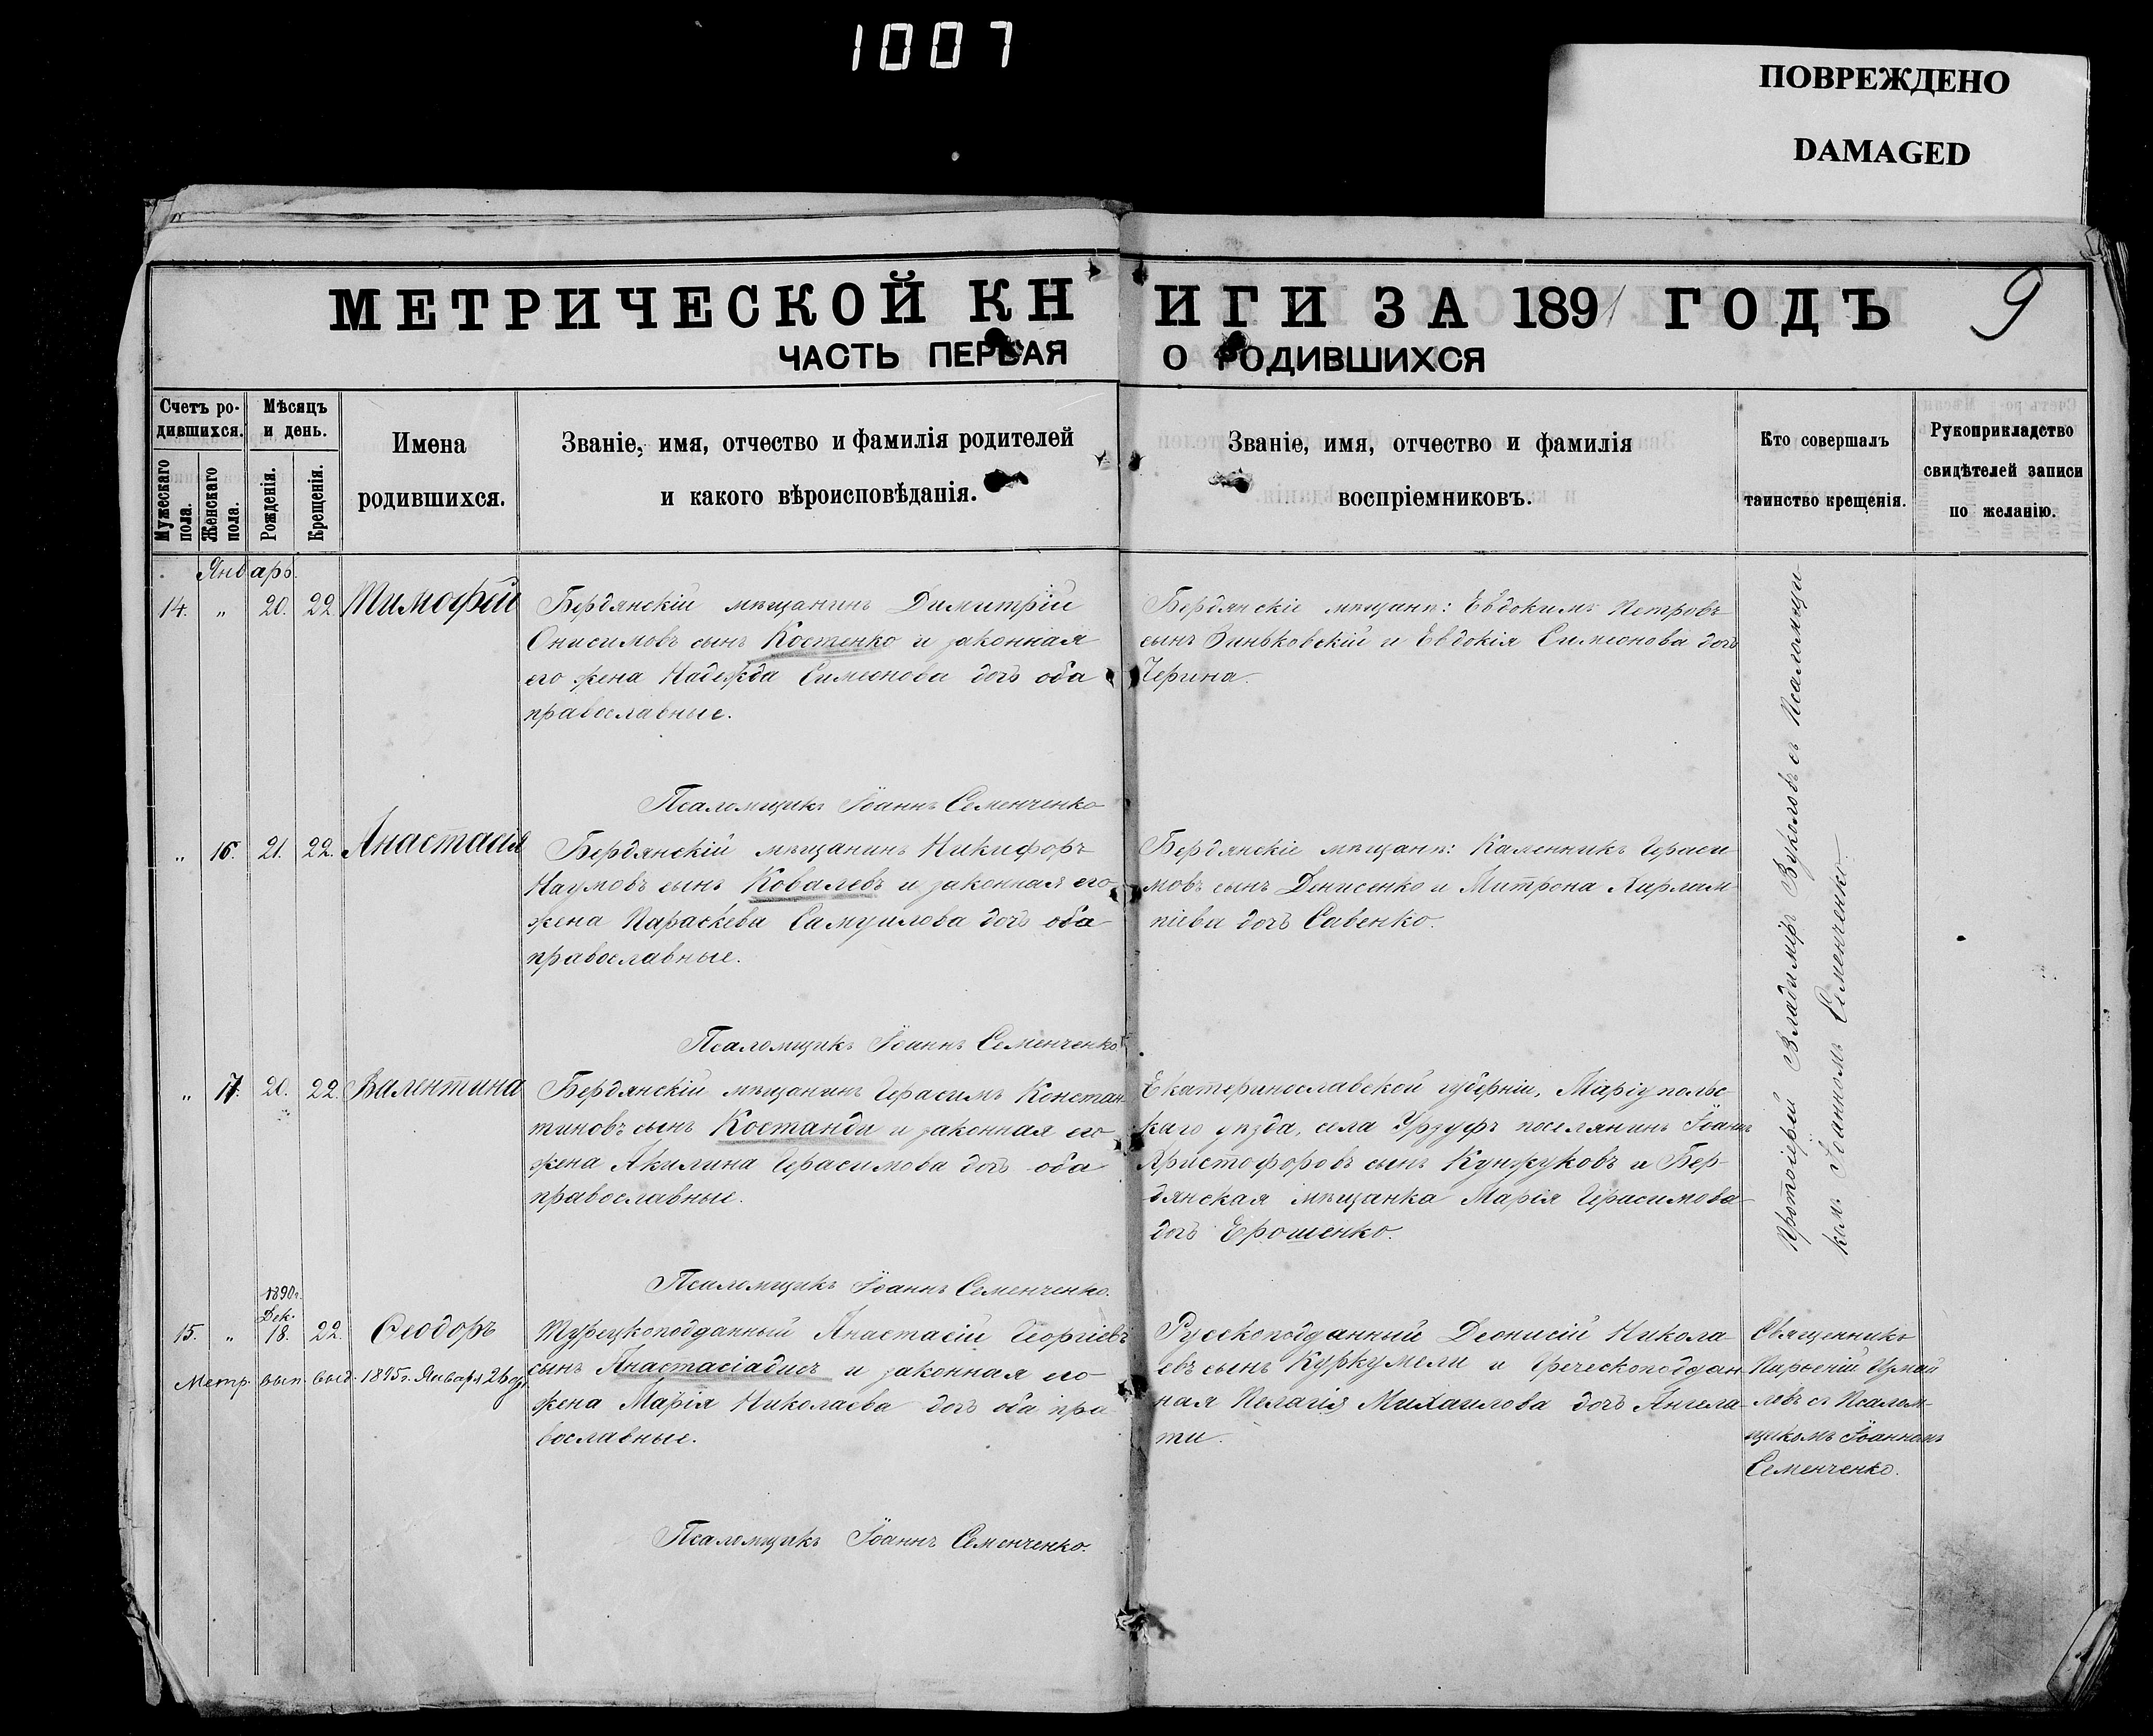 1007
ПОВРЕЖДЕНО
DAMAGED
МЕТРИЧЕСКОЙ КНИГИ ЗА 1891 ГОДЪ
9
ЧАСТЬ ПЕРВАЯ О РОДИВШИХСЯ
Счетъ ро-
дившихся.
Мужескаго
пола.
Женскаго
пола.
Мѣсяцъ
и день.
Рожденія.
Крещенія.
Имена
родившихся.
Званіе, имя, отчество и фамилія родителей
и какого вѣроисповѣданія.
Званіе, имя, отчество и фамилія
воспріемниковъ.
Кто совершалъ
таинство крещенія.
Рукоприкладство
свидѣтелей записи
по желанію.
Январь.
14. " 20. 22 Тимофѣй
Бердянскій мѣщанинъ Димитрій
Онисимовъ сынъ Костенко и законная
его жена Надежда Симеонова дочь оба
православные.
Псаломщикъ Іоаннъ Семенченко
Бердянскіе мѣщане: Евдокимъ Петровъ
сынъ Зиньковскій и Евдокія Симеонова дочь
Черина.
" 16. 21. 22. Анастасія
Бердянскій мѣщанинъ Никифоръ
Наумовъ сынъ Ковалевъ и законная его
жена Параскева Самуилова дочь оба
православные.
Псаломщикъ Іоаннъ Семенченко
Бердянскіе мѣщане: Каленникъ Гераси
мовъ сынъ Денисенко и Митрона Харлам
піева дочь Савенко.
" 17. 20. 22. Валентина
Бердянскій мѣщанинъ Герасимъ Констан
тиновъ сынъ Костанди и законная его
жена Акилина Герасимова дочь оба
православные.
Псаломщикъ Іоаннъ Семенченко.
Екатеринославской губерніи, Маріупольс
каго уѣзда, села Урзуфъ поселянинъ Іоаннъ
Христофоровъ сынъ Кунжуковъ и Бер-
дянская мѣщанка Марія Герасимова
дочь Ерошенко.
Протоіерей Владиміръ Вуколовъ съ Псаломщи-
комъ Іоанномъ Семенченко.
1890г.
Дек.
15. " 18. 22. Ѳеодоръ
Метр. вып. выд. 1895г. Января 26 дня
Турецкоподданный Анастасій Георгіевъ
сынъ Анастасіадисъ и законная его
жена Марія Николаева дочь оба пра
вославные.
Псаломщикъ Іоаннъ Семенченко.
Русскоподданный Діонисій Никола-
евъ сынъ Куркумели и Греческоподдан-
ная Пелагія Михаилова дочь Ангела-
ти.
Священникъ
Парѳеній Измай
ловъ съ Псалом-
щикомъ Іоанномъ
Семенченко.